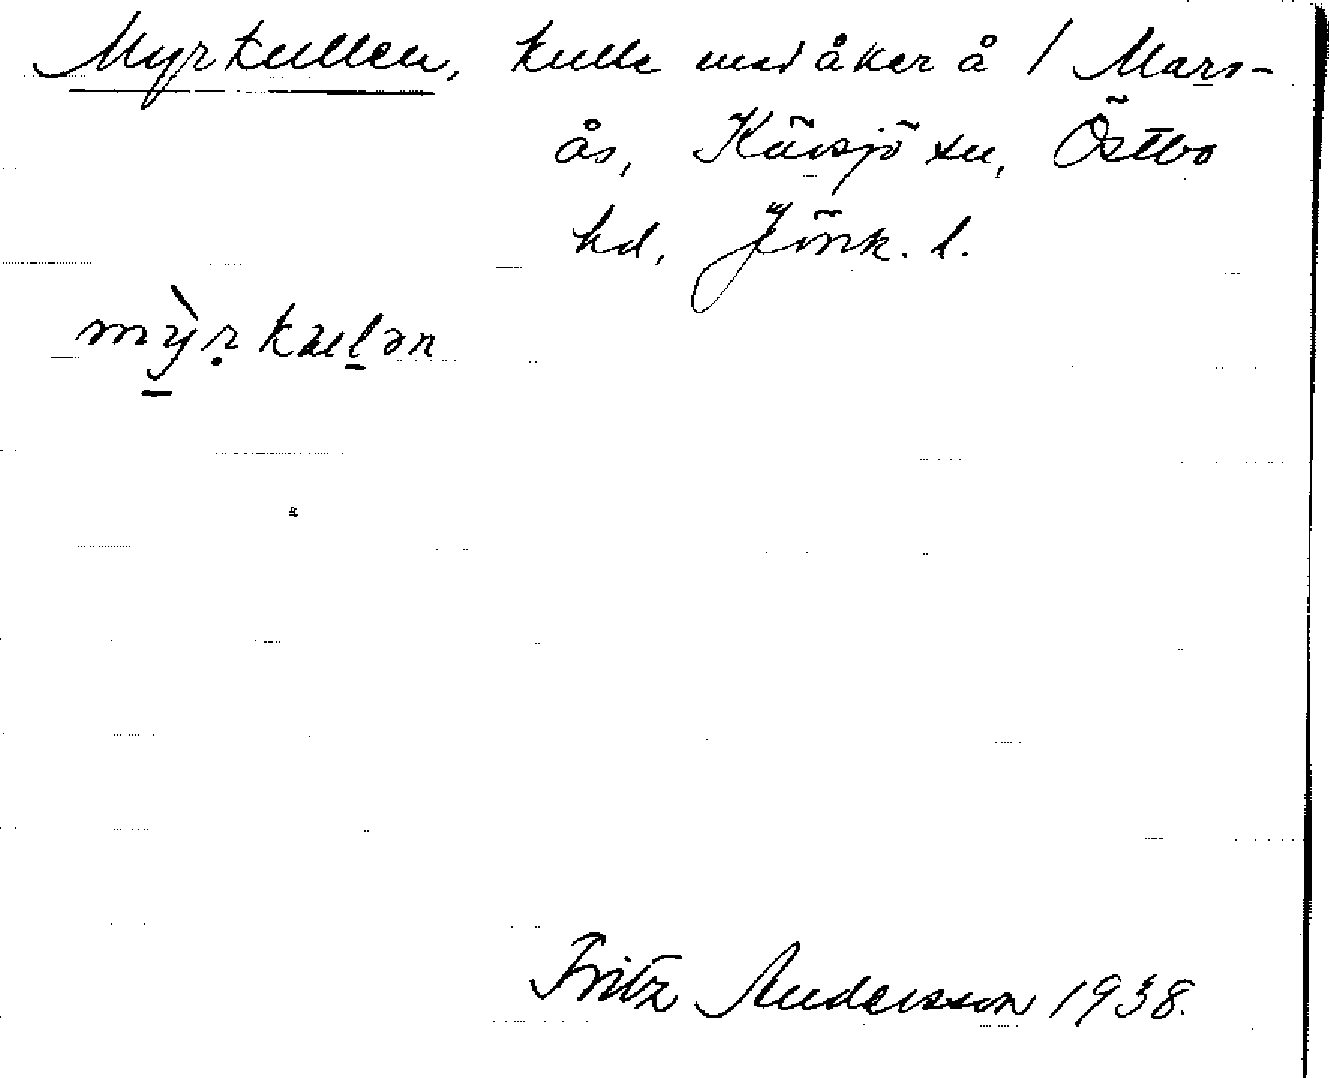 Myrkullen, kulle med åker å 1 Mars-
ås, Kävsjö sn, Östbo
hd, Jönk. l.
mỳ̠ṛkuḻən
Fritz Andersson 1938.